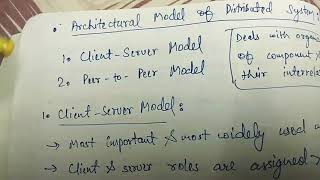 Architectural Model of Distributed System:
1. Client-Server Model
2. Peer-to-Peer Model
Deals with organi
of component &
their interrela
1. Client-Server Model:
→ Most important & most widely used
→ Client & server roles are assigned